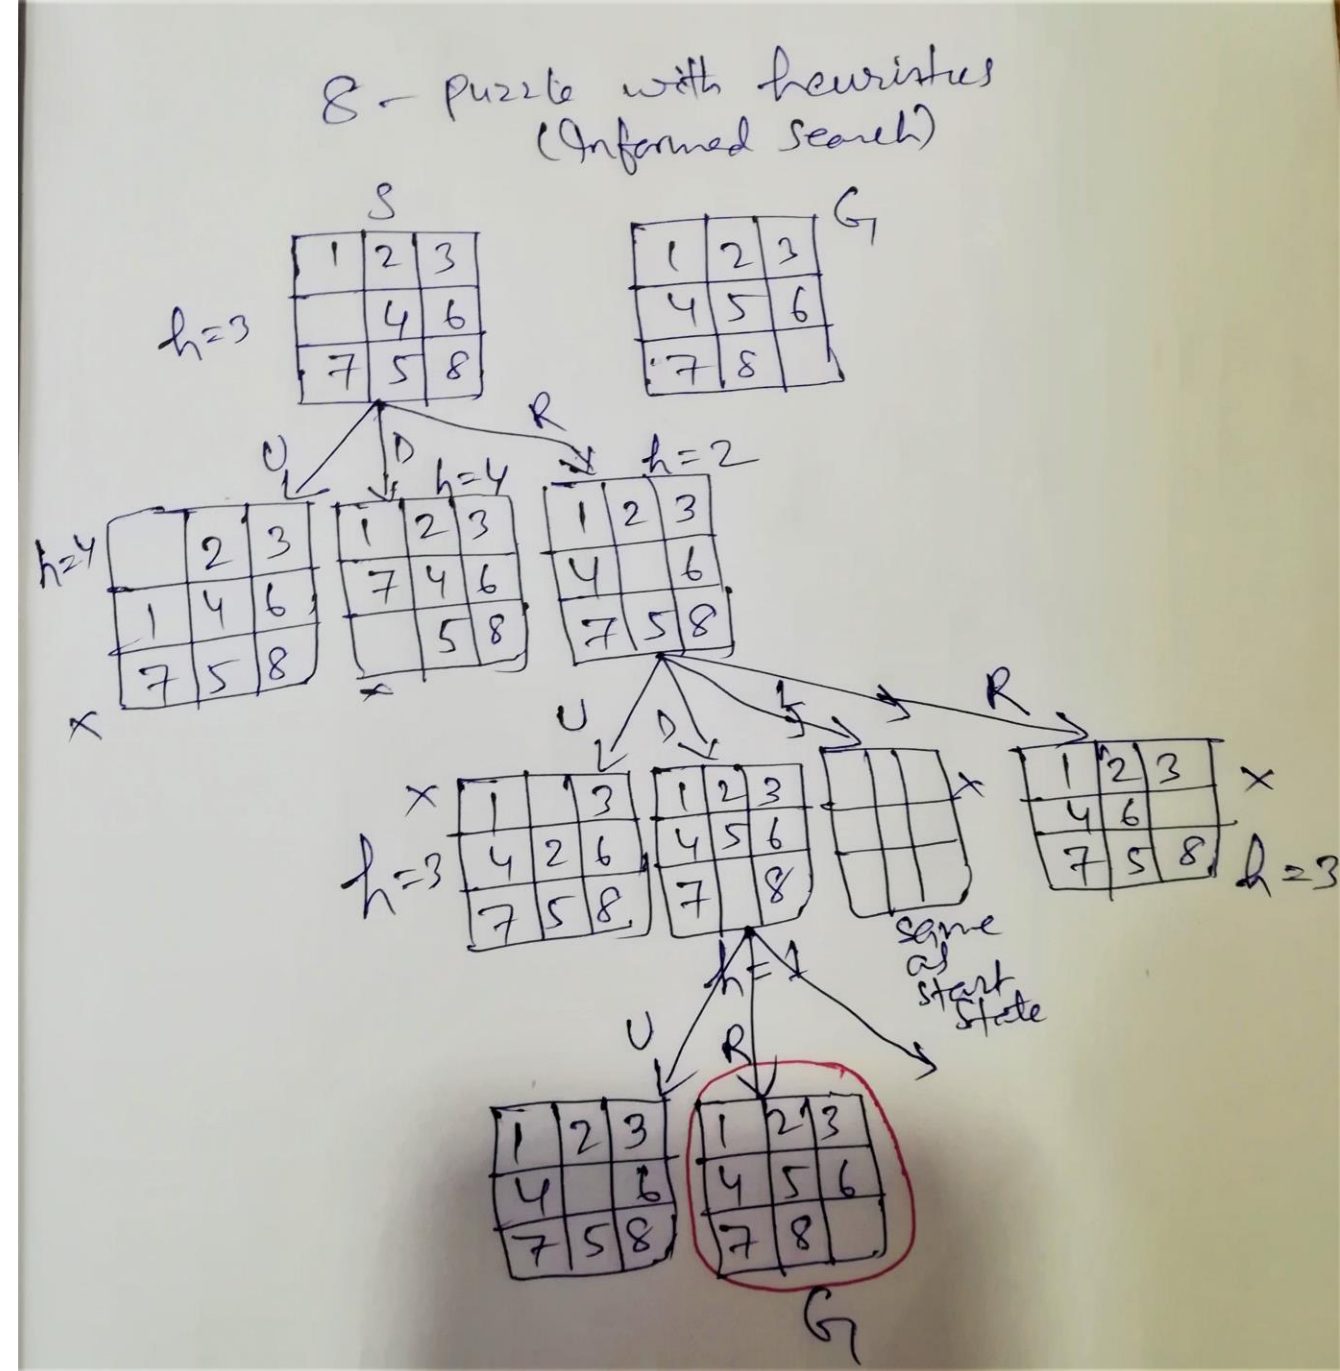 8 - puzzle with heuristics
(Informed Search)
S
G
1 2 3
4 6
7 5 8
h=3
1 2 3
4 5 6
7 8
U
D
R
h=4
2 3
1 4 6
7 5 8
x
h=4
1 2 3
7 4 6
5 8
x
h=2
1 2 3
4 6
7 5 8
U
D
L
R
x
h=3
1 3
4 2 6
7 5 8
1 2 3
4 5 6
7 8
h=1
x
same
as
start
state
1 2 3
4 6
7 5 8
x
h=3
U
R
1 2 3
4 6
7 5 8
1 2 3
4 5 6
7 8
G